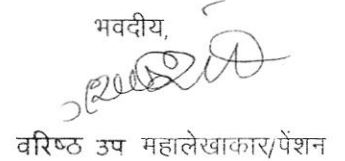 भवदीय,
वरिष्ठ उप महालेखाकार/पेंशन